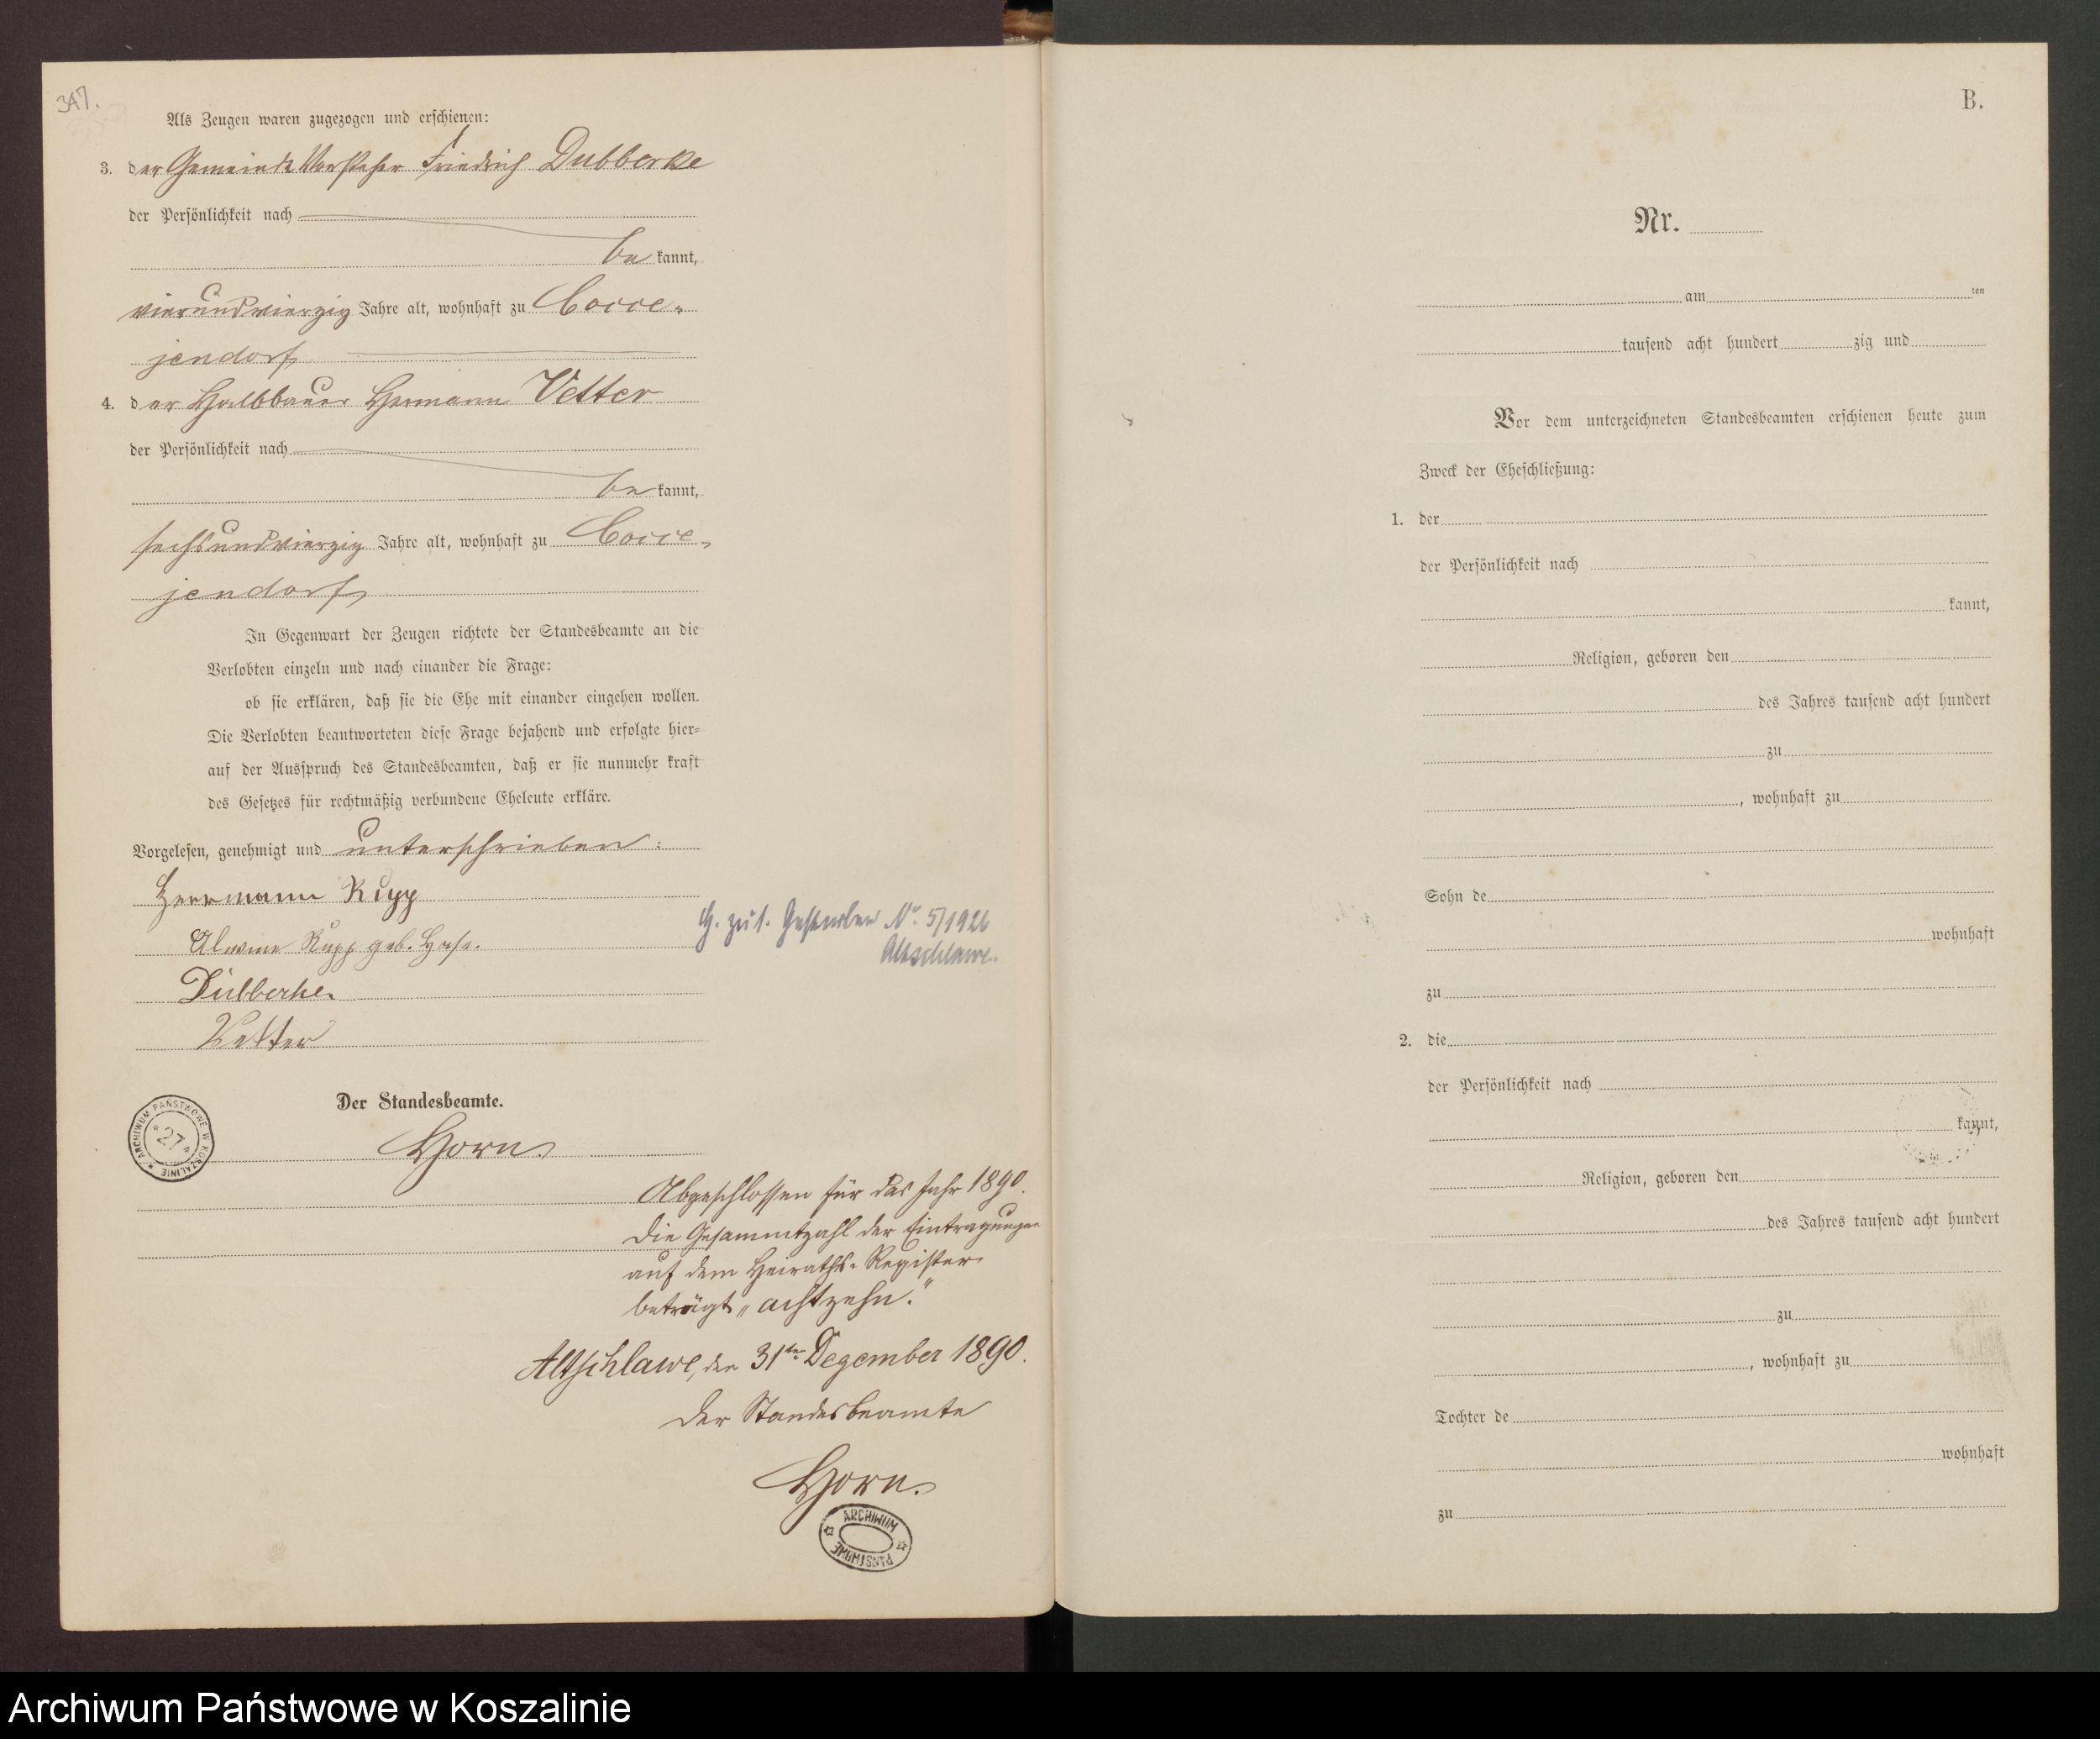 347.
Als Zeugen waren zugezogen und erschienen:
3. der Gemeinde Vorsteher Friedrich Dubberke
der Persönlichkeit nach
be kannt,
vierundvierzig Jahre alt, wohnhaft zu Cocce-
jendorf
4. der Halbbauer Hermann Vetter
der Persönlichkeit nach
be kannt,
sechsundvierzig Jahre alt, wohnhaft zu Cocce-
jendorf
In Gegenwart der Zeugen richtete der Standesbeamte an die
Verlobten einzeln und nach einander die Frage:
ob sie erklären, daß sie die Ehe mit einander eingehen wollen.
Die Verlobten beantworteten diese Frage bejahend und erfolgte hier-
auf der Ausspruch des Standesbeamten, daß er sie nunmehr kraft
des Gesetzes für rechtmäßig verbundene Eheleute erkläre.
Vorgelesen, genehmigt und unterschrieben:
Herrmann Rupp
Rupp geb.
Dubberke.
Vetter
zu 1. Gestorben No. 5/1926
Altschlawe.
Der Standesbeamte.
Horn.
ARCHIWUM PAŃSTWOWE W KOSZALINIE * 27 *
Abgeschlossen für das Jahr 1890.
Die Gesammtzahl der Eintragungen
auf dem Heiraths-Register
beträgt „achtzehn."
Altschlawe, den 31ten Dezember 1890.
Der Standesbeamte
Horn.
ARCHIWUM PAŃSTWOWE
B.
Nr.
am ten
tausend acht hundert zig und
Vor dem unterzeichneten Standesbeamten erschienen heute zum
Zweck der Eheschließung:
1. der
der Persönlichkeit nach
kannt,
Religion, geboren den
des Jahres tausend acht hundert
zu
, wohnhaft zu
Sohn de
wohnhaft
zu
2. die
der Persönlichkeit nach
kannt,
Religion, geboren den
des Jahres tausend acht hundert
zu
, wohnhaft zu
Tochter de
wohnhaft
zu
Archiwum Państwowe w Koszalinie